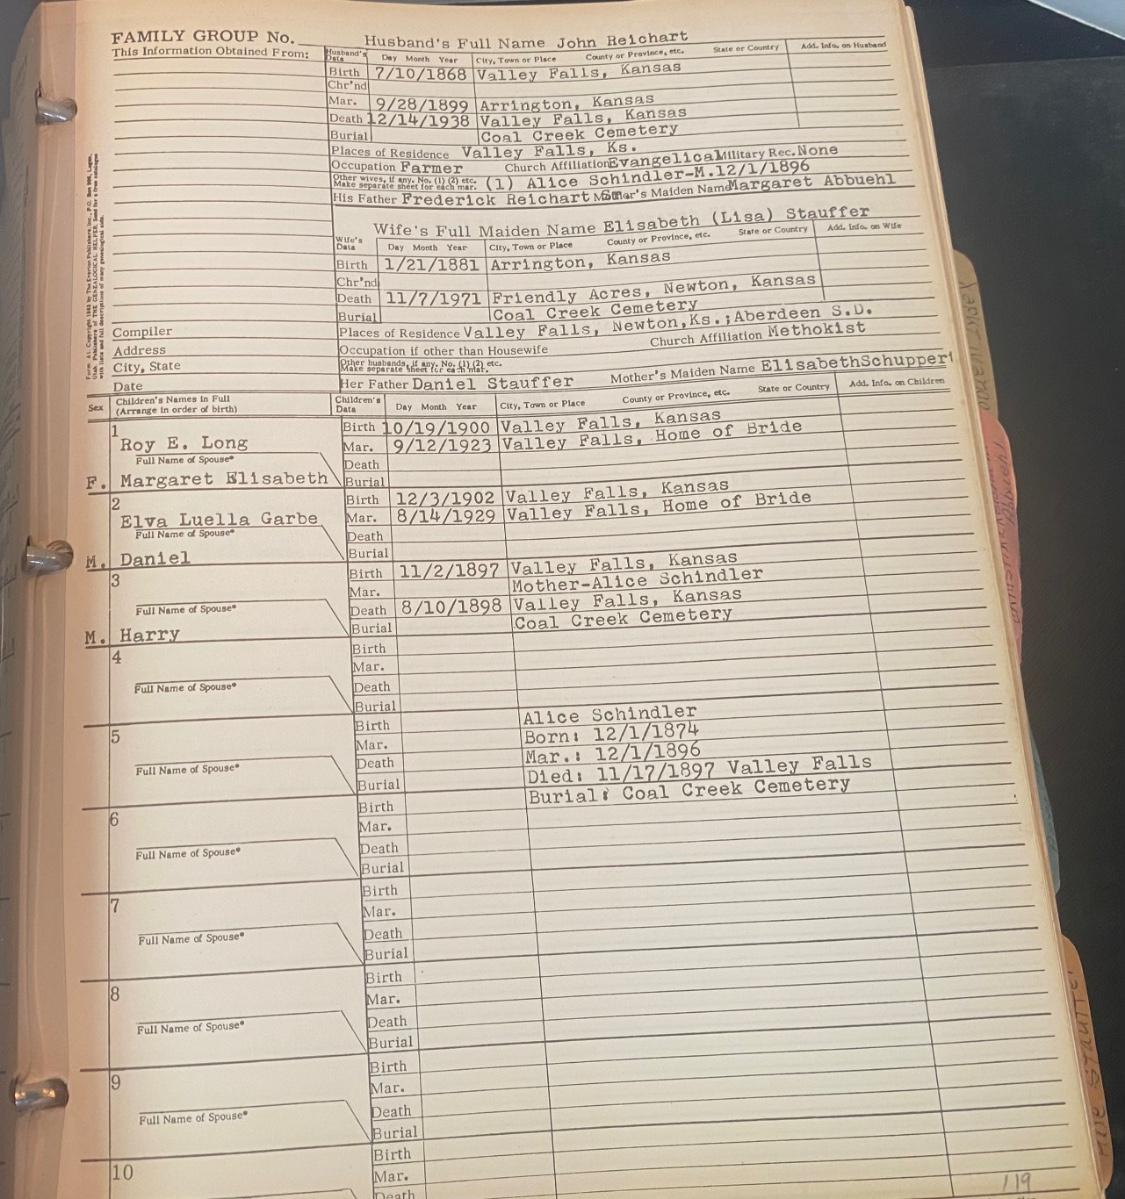 FAMILY GROUP No.
Husband's Full Name John Reichart
This Information Obtained From:
Husband's Data Day Month Year City, Town or Place County or Province, etc. State or Country Add. Info. on Husband
Birth 7/10/1868 Valley Falls, Kansas
Chr'nd
Mar. 9/28/1899 Arrington, Kansas
Death 12/14/1938 Valley Falls, Kansas
Burial Coal Creek Cemetery
Places of Residence Valley Falls, Ks.
Occupation Farmer Church Affiliation Evangelical Military Rec. None
Other wives, if any. No. (1) (2) etc. Make separate sheet for each mar. (1) Alice Schindler-M.12/1/1896
His Father Frederick Reichart Mother's Maiden Name Margaret Abbuehl
Wife's Full Maiden Name Elisabeth (Lisa) Stauffer
Wife's Data Day Month Year City, Town or Place County or Province, etc. State or Country Add. Info. on Wife
Birth 1/21/1881 Arrington, Kansas
Chr'nd
Death 11/7/1971 Friendly Acres, Newton, Kansas
Burial Coal Creek Cemetery
Compiler Places of Residence Valley Falls, Newton,Ks.;Aberdeen S.D.
Address Occupation if other than Housewife Church Affiliation Methokist
City, State Other husbands, if any. No. (1) (2) etc. Make separate sheet for each mar.
Date Her Father Daniel Stauffer Mother's Maiden Name ElisabethSchuppert
Sex Children's Names in Full (Arrange in order of birth) Children's Data Day Month Year City, Town or Place County or Province, etc. State or Country Add. Info. on Children
1 Birth 10/19/1900 Valley Falls, Kansas
Roy E. Long Mar. 9/12/1923 Valley Falls, Home of Bride
Full Name of Spouse* Death
F. Margaret Elisabeth Burial
2 Birth 12/3/1902 Valley Falls, Kansas
Elva Luella Garbe Mar. 8/14/1929 Valley Falls, Home of Bride
Full Name of Spouse* Death
M. Daniel Burial
3 Birth 11/2/1897 Valley Falls, Kansas
Mar. Mother-Alice Schindler
Full Name of Spouse* Death 8/10/1898 Valley Falls, Kansas
M. Harry Burial Coal Creek Cemetery
4 Birth
Mar.
Full Name of Spouse* Death
Burial
5 Birth Alice Schindler
Mar. Born: 12/1/1874
Death Mar.: 12/1/1896
Full Name of Spouse* Died: 11/17/1897 Valley Falls
Burial Burial: Coal Creek Cemetery
6 Birth
Mar.
Full Name of Spouse* Death
Burial
7 Birth
Mar.
Full Name of Spouse* Death
Burial
8 Birth
Mar.
Full Name of Spouse* Death
Burial
9 Birth
Mar.
Full Name of Spouse* Death
Burial
10 Birth
Mar.
Death
119